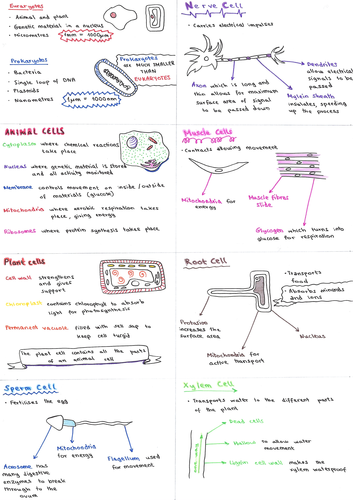 Eukaryotes
• Animal and plant
• Genetic material in a nucleus
• Micrometres 1mm = 1000μm
Prokaryotes
• Bacteria
• Single loop of DNA
• Plasmids
• Nanometres 1μm = 1000nm
Prokaryotes
ARE MUCH SMALLER
THAN
EUKARYOTES
Nerve Cell
• Carries electrical impulses
Axon which is long and
thin allows for maximum
surface area of signal
to be passed down
Dendrites
allow electrical
signals to be
passed
Myelin Sheath
insulates, speeding
up the process
ANIMAL CELLS
Cytoplasm where chemical reactions
take place
Nucleus where genetic material is stored
and all activity monitored
Membrane controls movement on inside/outside
of materials (glucose)
Mitochondria where aerobic respiration takes
place, giving energy
Ribosomes where protein synthesis takes place
Muscle Cells
• Contracts allowing movement
Mitochondria for
energy
Muscle fibres
slide
Glycogen which turns into
glucose for respiration
Plant cells
Cell wall strengthens
and gives
support
contains chlorophyll to absorb
light for photosynthesis
Permanent vacuole filled with cell sap to
keep cell turgid
The plant cell contains all the parts
of an animal cell
Root Cell
• Transports
food
• Absorbs minerals
and ions
Protusion
increases the
surface area
Mitochondria for
active transport
Nucleus
Sperm Cell
• Fertilises the egg
Mitochondria
for energy
Acrosome has
many digestive
enzymes to break
through to the
ovum
Flagellum used
for movement
Xylem Cell
• Transports water to the different parts
of the plant
Dead cells
Hollow to allow water
movement
cell wall makes the
xylem waterproof